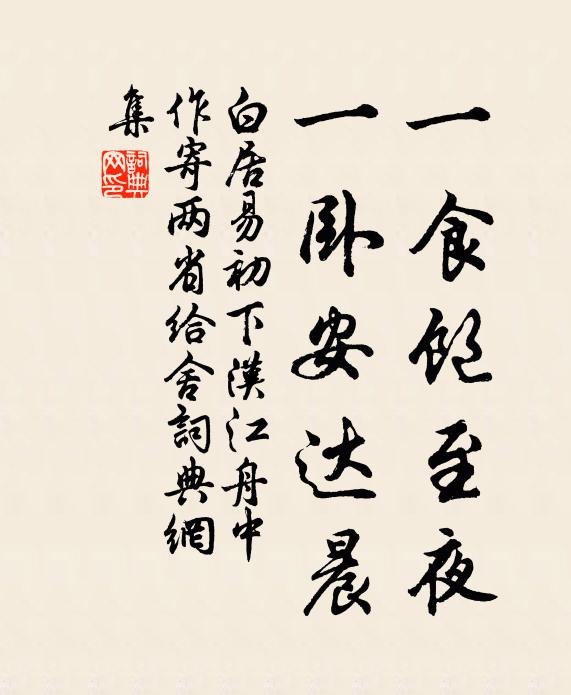 一食飽至夜
一卧安达晨
白居易初下漢江舟中
作寄两省给舍詞典網
集
詞典
网印